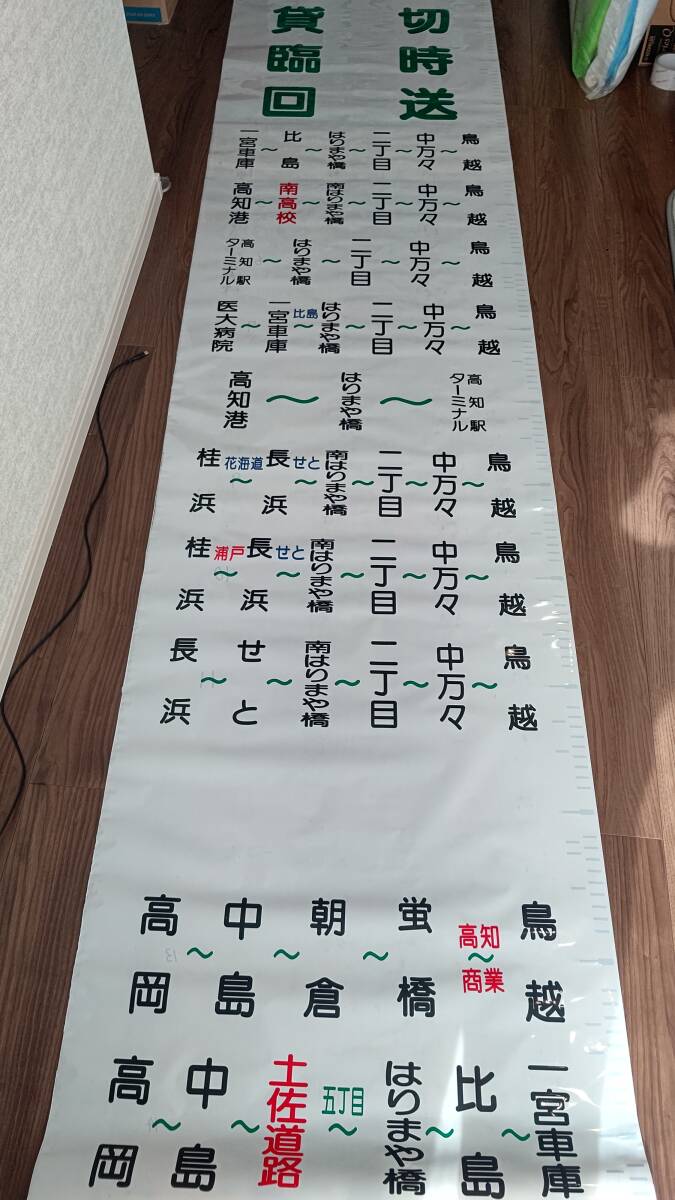 貸切
臨時
回送
一宮車庫～比島～はりまや橋～二丁目～中万々～鳥越
高知港～南高校～南はりまや橋～二丁目～中万々～鳥越
高知駅ターミナル～はりまや橋～二丁目～中万々～鳥越
医大病院～一宮車庫～比島～はりまや橋～二丁目～中万々～鳥越
高知港～はりまや橋～高知駅ターミナル
桂浜～花海道～長浜～せと～南はりまや橋～二丁目～中万々～鳥越
桂浜～浦戸～長浜～せと～南はりまや橋～二丁目～中万々～鳥越
長浜～せと～南はりまや橋～二丁目～中万々～鳥越
高岡～中島～朝倉～蛍橋～高知商業～鳥越
高岡～中島～土佐道路～五丁目～はりまや橋～比島～一宮車庫